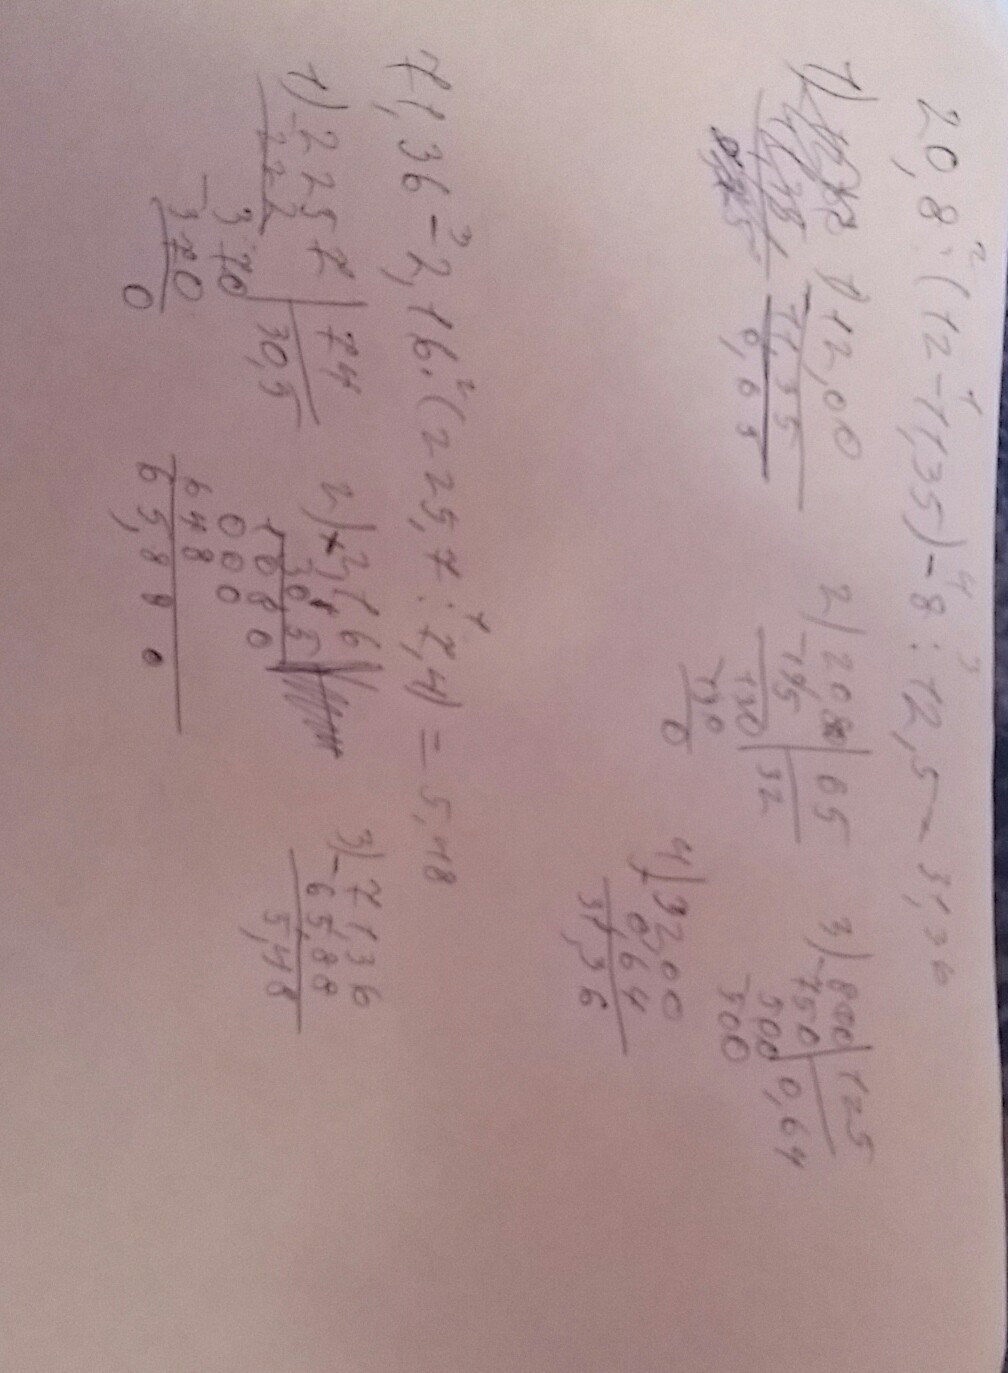 20,8 : (12 - 11,35) - 8 : 12,5 = 31,36
2 1 4 3
1) 12,00
- 11,35
0,65
2) 2080 | 65
- 195 | 32
130
- 130
0
3) 800 | 125
- 750 | 0,64
500
- 500
4) 32,00
- 0,64
31,36
71,36 - 2,16 · (225,7 : 7,4) = 5,48
3 2 1
1) - 2257 | 74
222 | 30,5
- 370
370
0
2) × 2,16
30,5
+ 1080
000
648
65,880
3) - 71,36
65,88
5,48